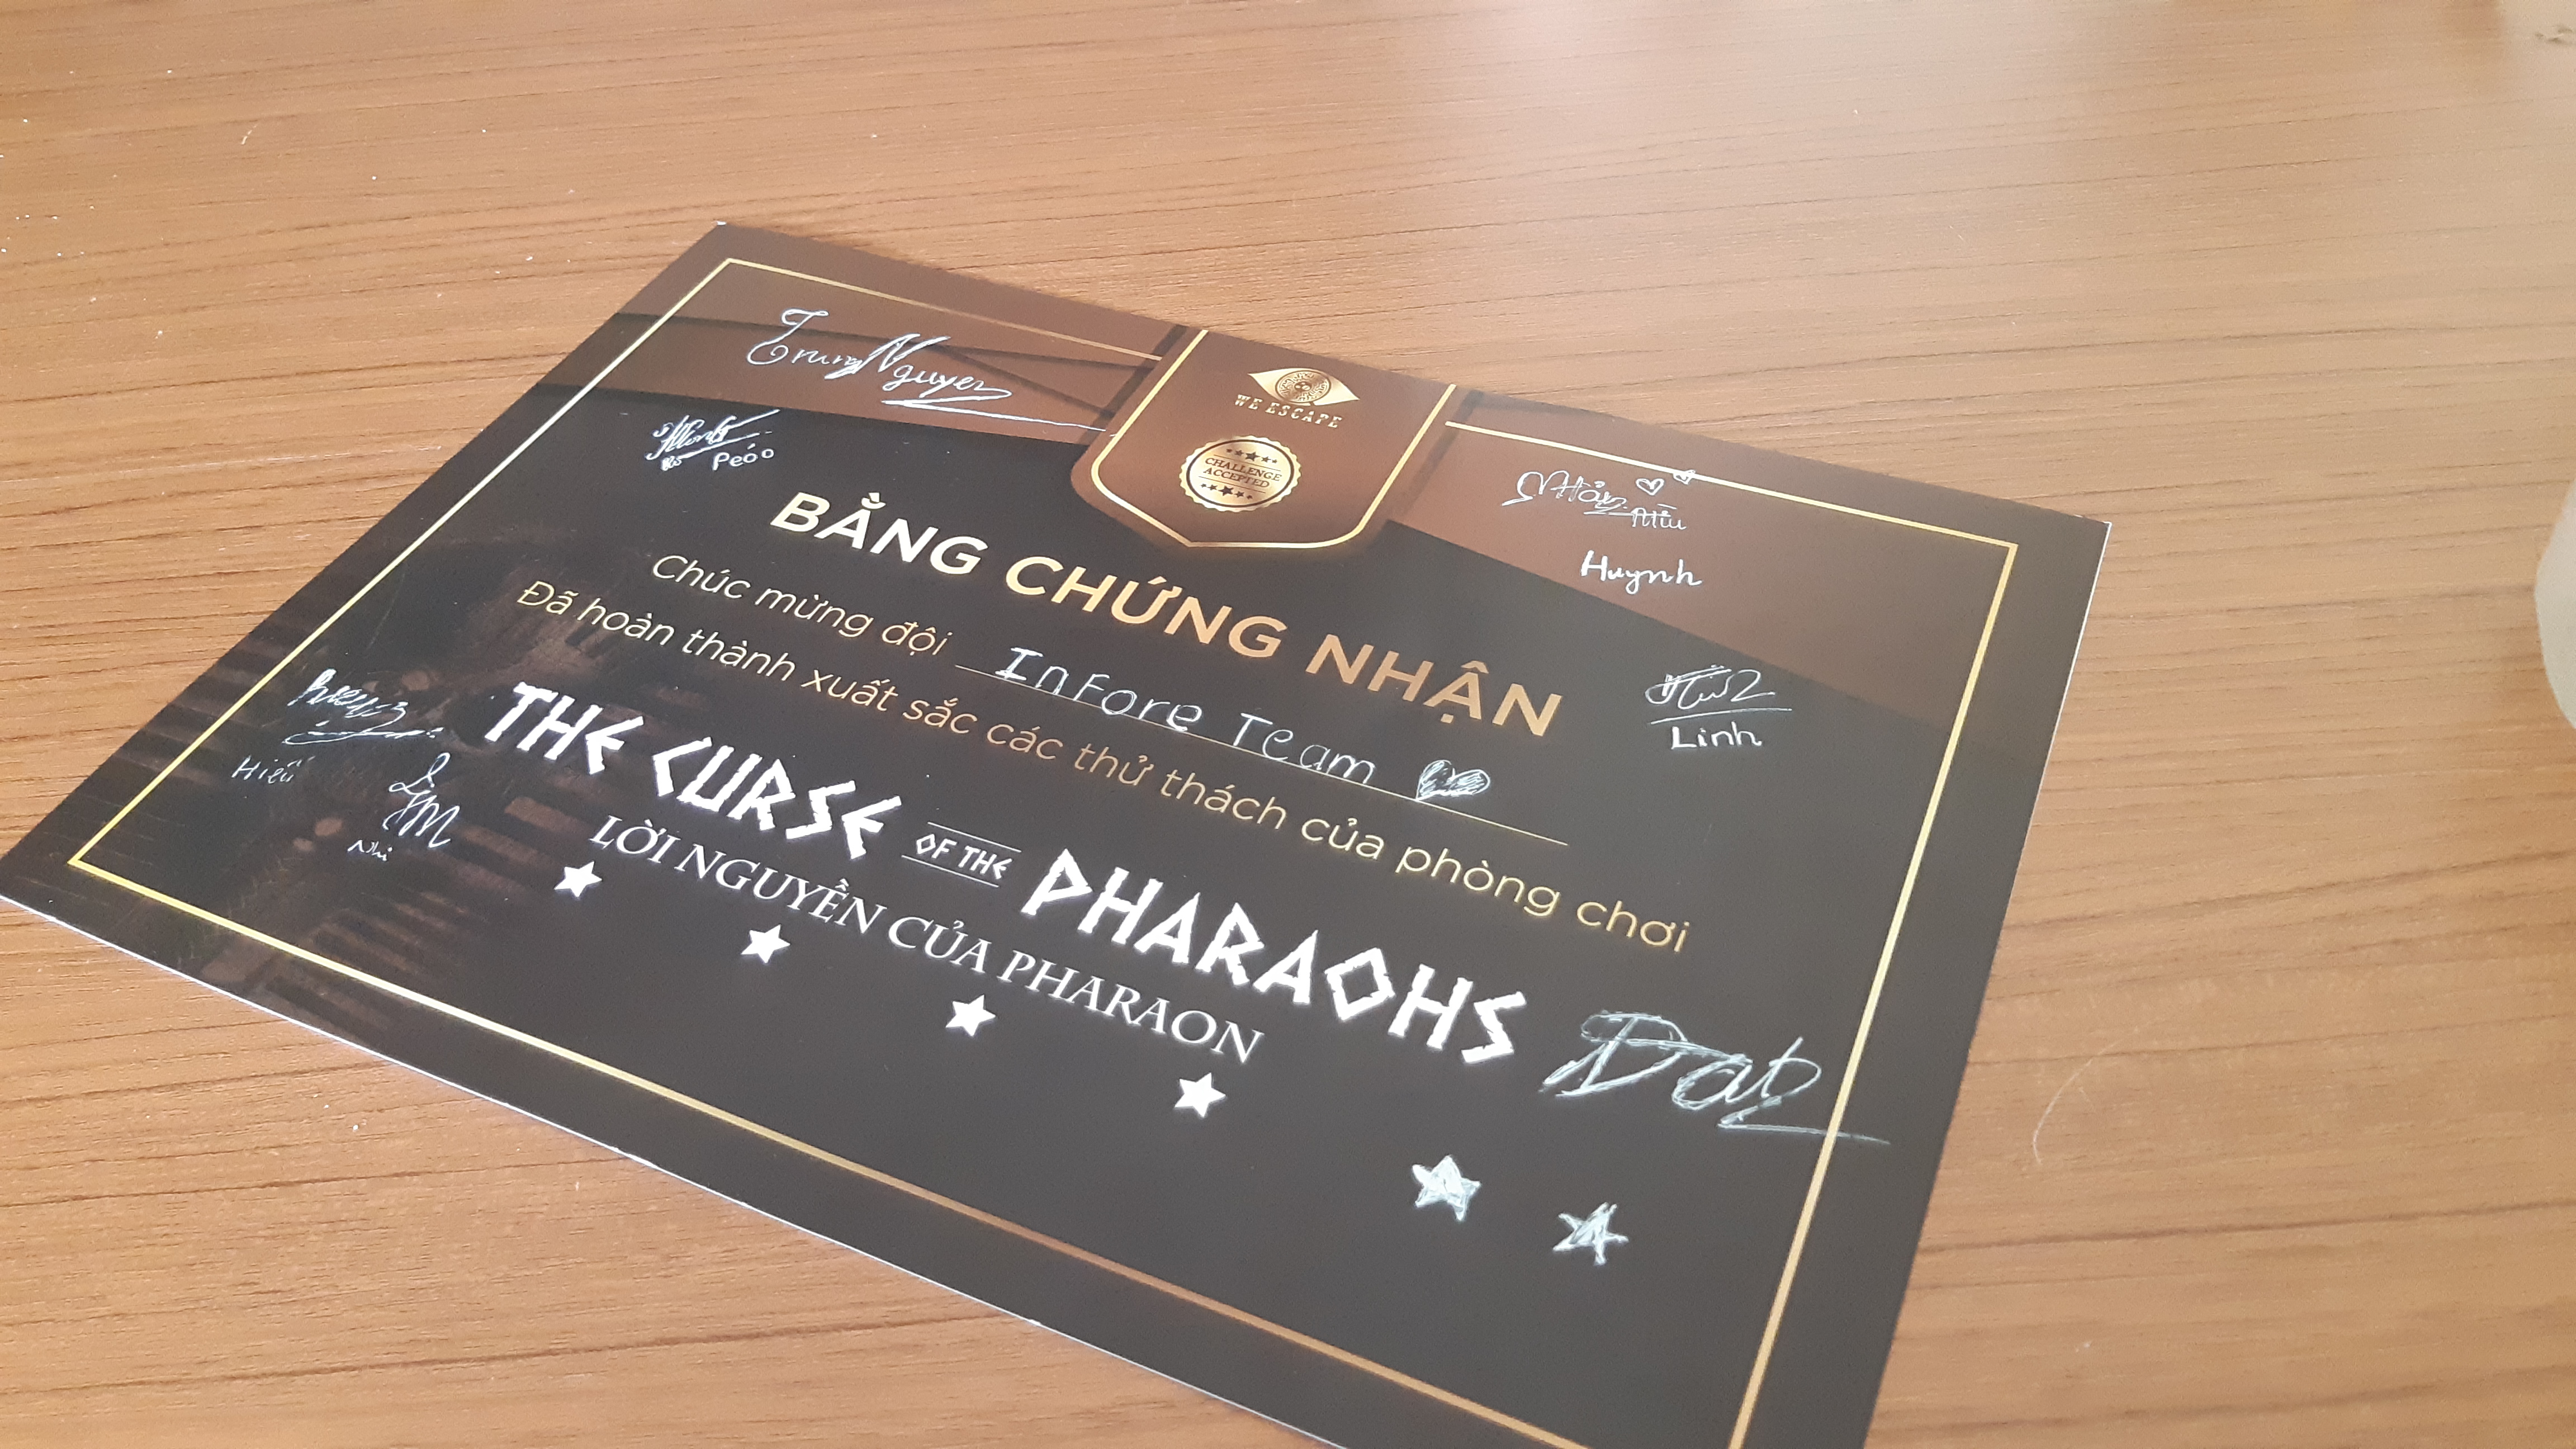 Trung Nguyen
Peóo
WE ESCAPE
CHALLENGE
ACCEPTED
Huynh
BẰNG CHỨNG NHẬN
Chúc mừng đội InFore Team
Đã hoàn thành xuất sắc các thử thách của phòng chơi
Linh
THE CURSE OF THE PHARAOHS
LỜI NGUYỀN CỦA PHARAON
Hiếu
Nhi
Dat